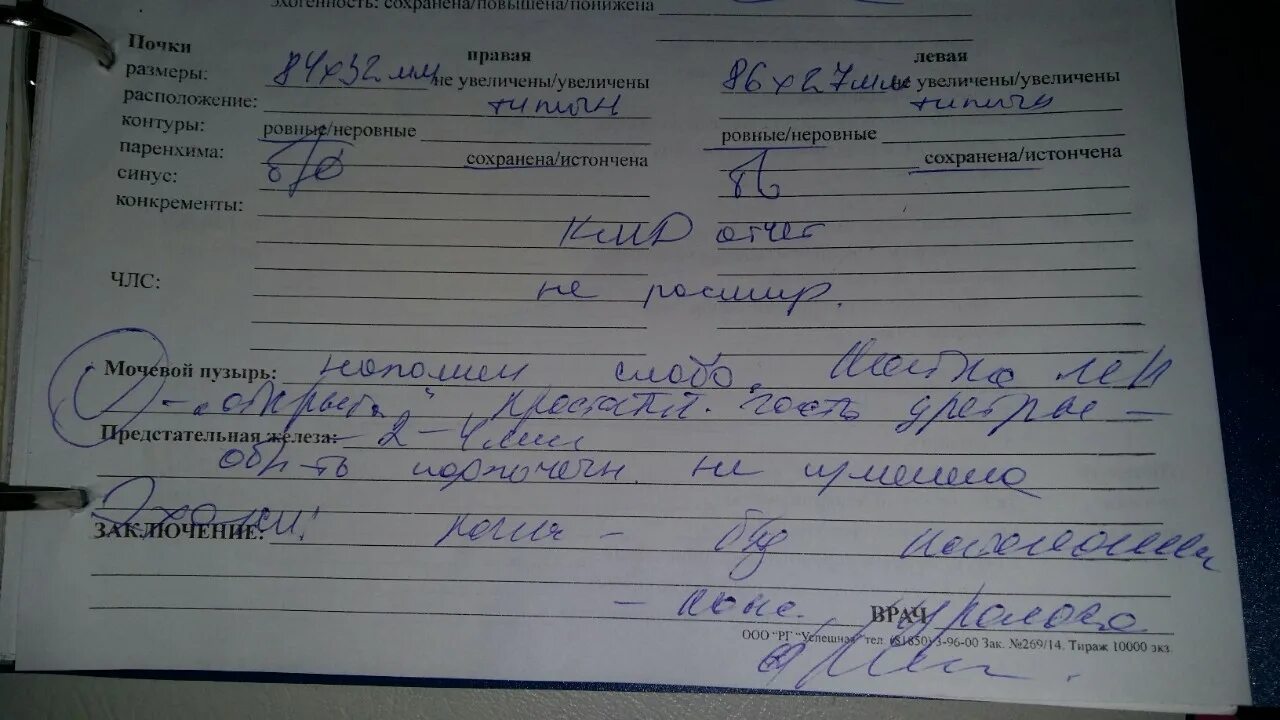 эхогенность: сохранена/повышена/понижена
Почки правая левая
размеры: 84х32мм не увеличены/увеличены 86х27мм не увеличены/увеличены
расположение: типичн типичн
контуры: ровные/неровные ровные/неровные
паренхима: сохранена/истончена сохранена/истончена
синус: б/о
конкременты:
КМД отчет
ЧЛС: не расшир.
Мочевой пузырь: наполнен слабо. Шейка
- "открыта", простатич. часть уретры -
Предстательная железа: - 2-4 мм
обл-ть надпочечн. не изменена
ЗАКЛЮЧЕНИЕ: почки -
- конс. ВРАЧ уролога
ООО "РГ "Успешная" тел. (81850) 3-96-00 Зак. №269/14. Тираж 10000 экз.